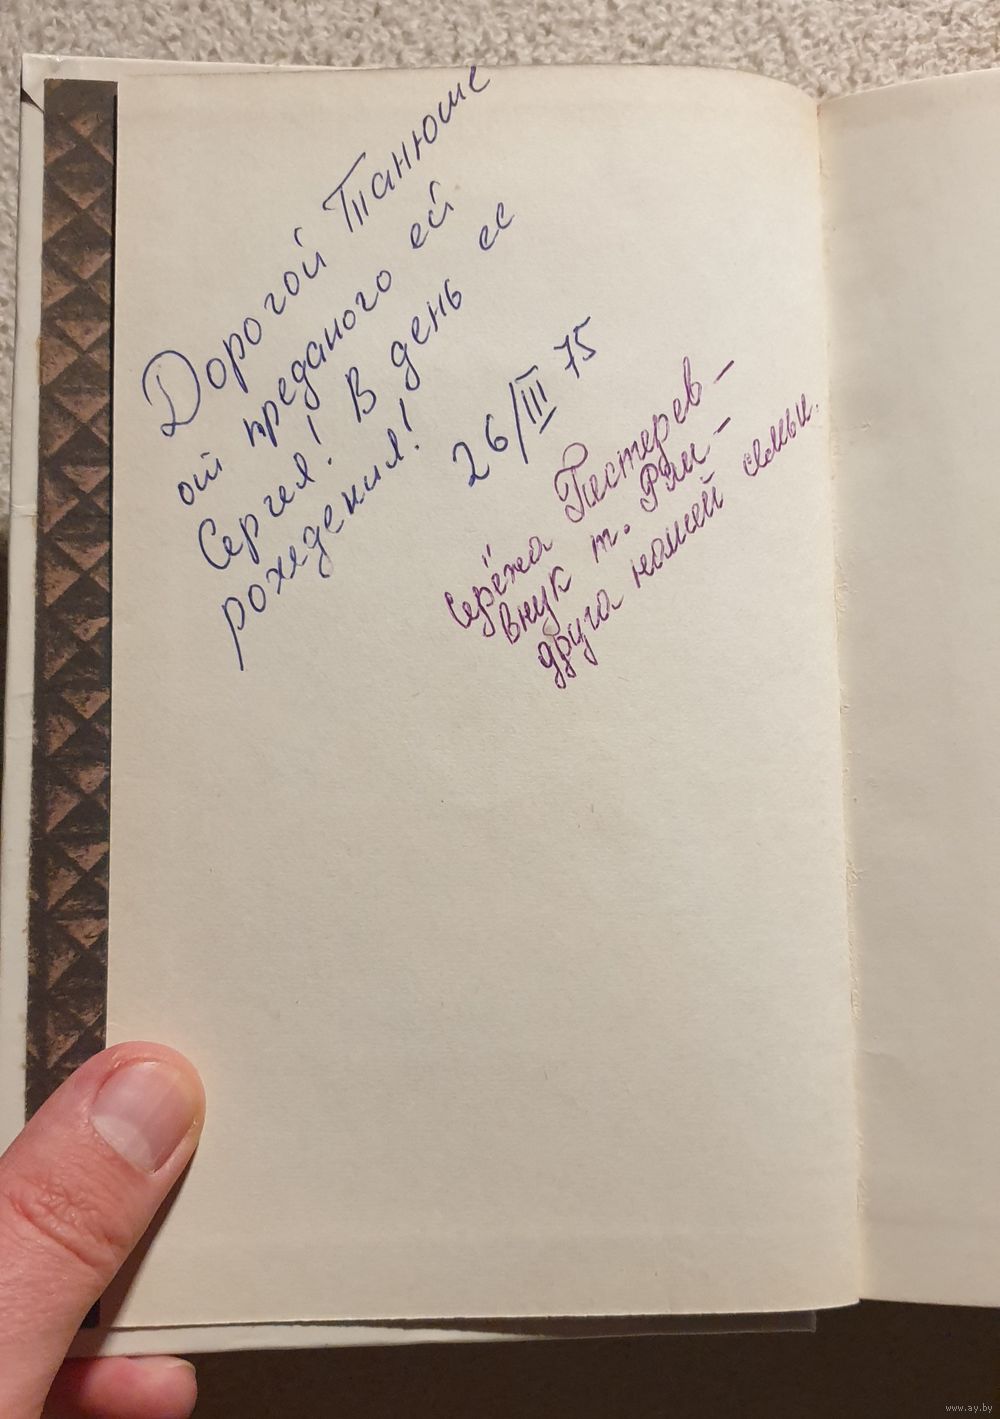 Дорогой Танюше
от преданого ей
Сергея! В день ее
рождения!
26/III 75
Серёжа Пестерев –
внук т. Рэи –
друга нашей семьи.
www.ay.by